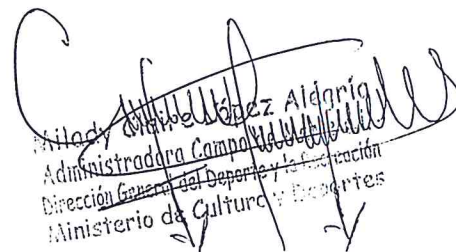 Milady López Aldana
Administradora Campo
Dirección General del Deporte y la Recreación
Ministerio de Cultura y Deportes